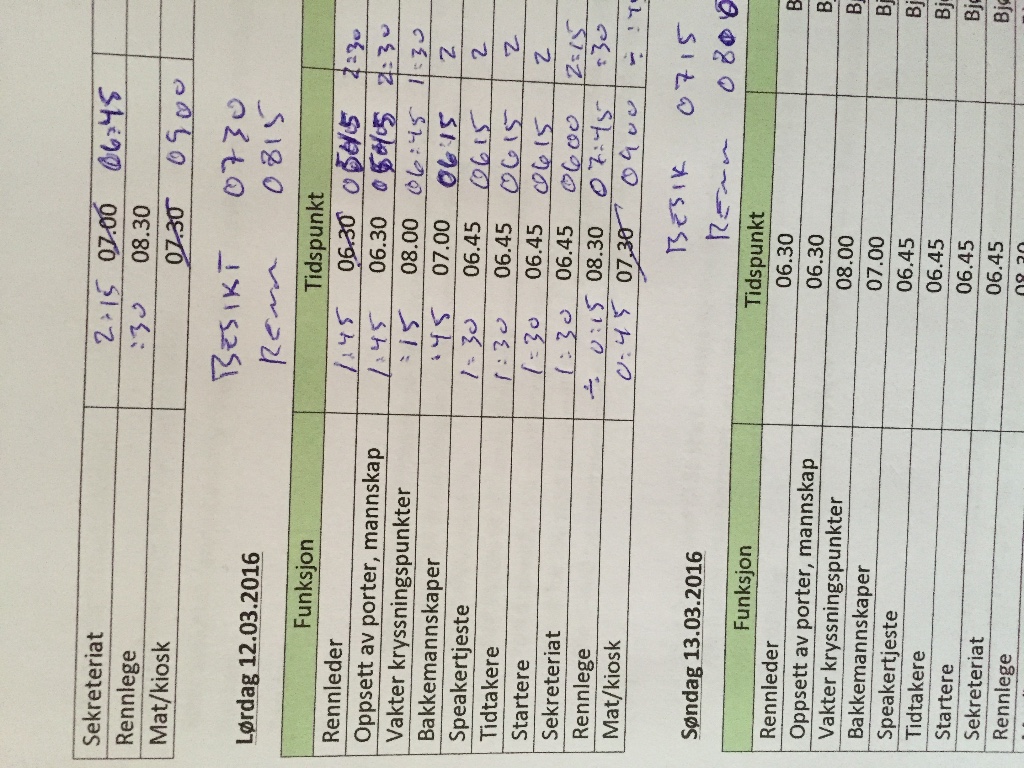 Sekreteriat 2:15 07.00 06:45
Rennlege :30 08.30
Mat/kiosk 07.30 0900
BESIKT 0730
Renn 0815
Lørdag 12.03.2016
Funksjon Tidspunkt
Rennleder 1:45 06.30 2:30
Oppsett av porter, mannskap 1:45 06.30 2:30
Vakter kryssningspunkter :15 08.00 06:45 1:30
Bakkemannskaper :45 07.00 06:15 2
Speakertjeste 1:30 06.45 0615 2
Tidtakere 1:30 06.45 0615 2
Startere 1:30 06.45 0615 2
Sekreteriat 1:30 06.45 0600 2:15
Rennlege ÷ 0:15 08.30 07:45 :30
Mat/kiosk 0:45 07.30 0900
BESIK 0715
Renn 0800
Søndag 13.03.2016
Funksjon Tidspunkt
Rennleder 06.30
Oppsett av porter, mannskap 06.30
Vakter kryssningspunkter 08.00
Bakkemannskaper 07.00
Speakertjeste 06.45
Tidtakere 06.45
Startere 06.45
Sekreteriat 06.45
Rennlege 08.30